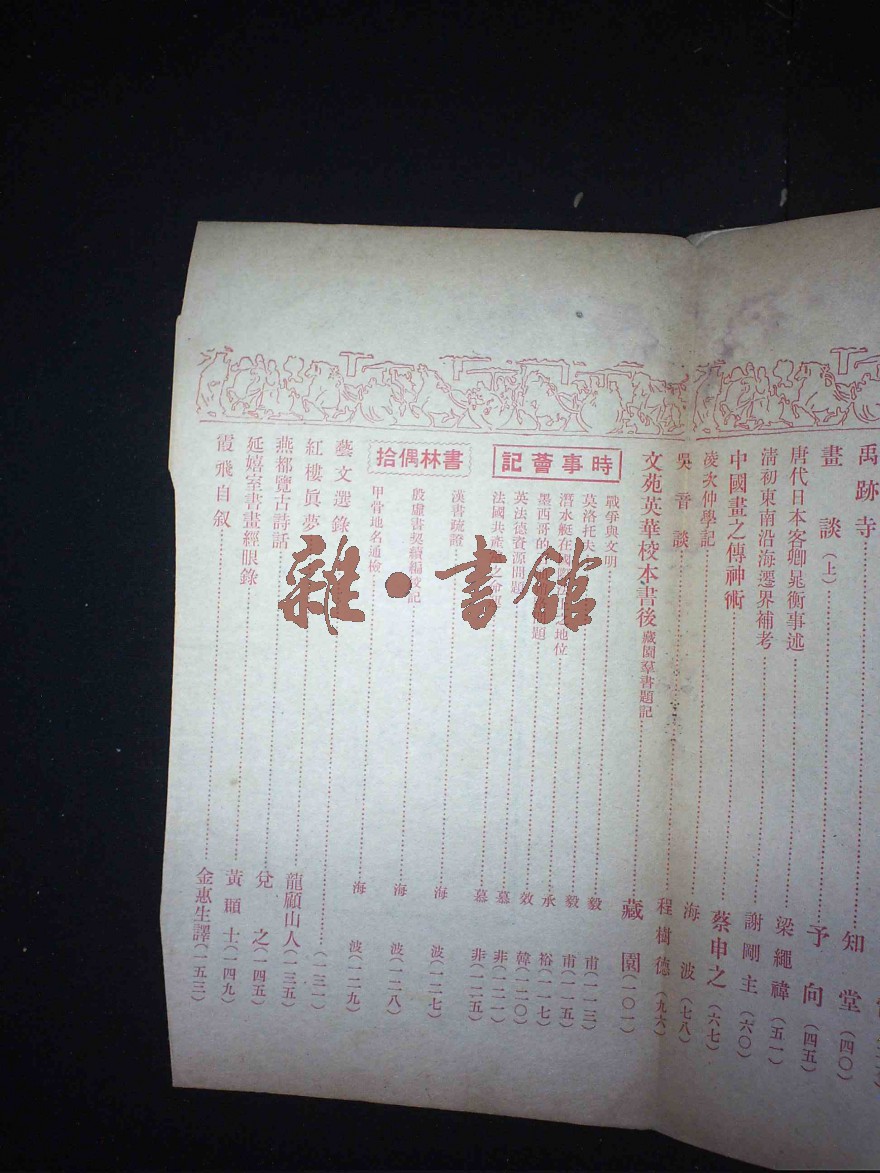 禹跡寺 知堂 (四〇)
畫談(上) 予向 (四五)
唐代日本客卿晁衡事述 梁繩禕 (五一)
清初東南沿海遷界補考 謝剛主 (六〇)
中國畫之傳神術 蔡申之 (六七)
凌次仲學記 海波 (七八)
吳 談 程樹德 (九六)
文苑英華校本書後 藏園羣書題記 藏園 (一〇一)
時事薈記
戰爭與文明 毅甫 (一一三)
莫洛托夫 毅甫 (一一五)
潛水艇在國際 地位 承裕 (一一七)
墨西哥的 題 效韓 (一二〇)
英法德資源問題 慕非 (一二一)
法國共產 之命 慕非 (一二五)
書林偶拾
漢書疏證 海波 (一二七)
殷虛書契續編校記 海波 (一二八)
甲骨地名通檢 海波 (一二九)
藝文選錄 (一三一)
紅樓眞夢 龍顧山人 (一三五)
燕都覽古詩話 兌之 (一四五)
延嬉室書畫經眼錄 黃頵士 (一四九)
霞飛自叙 金惠生譯 (一五三)
雜·書館